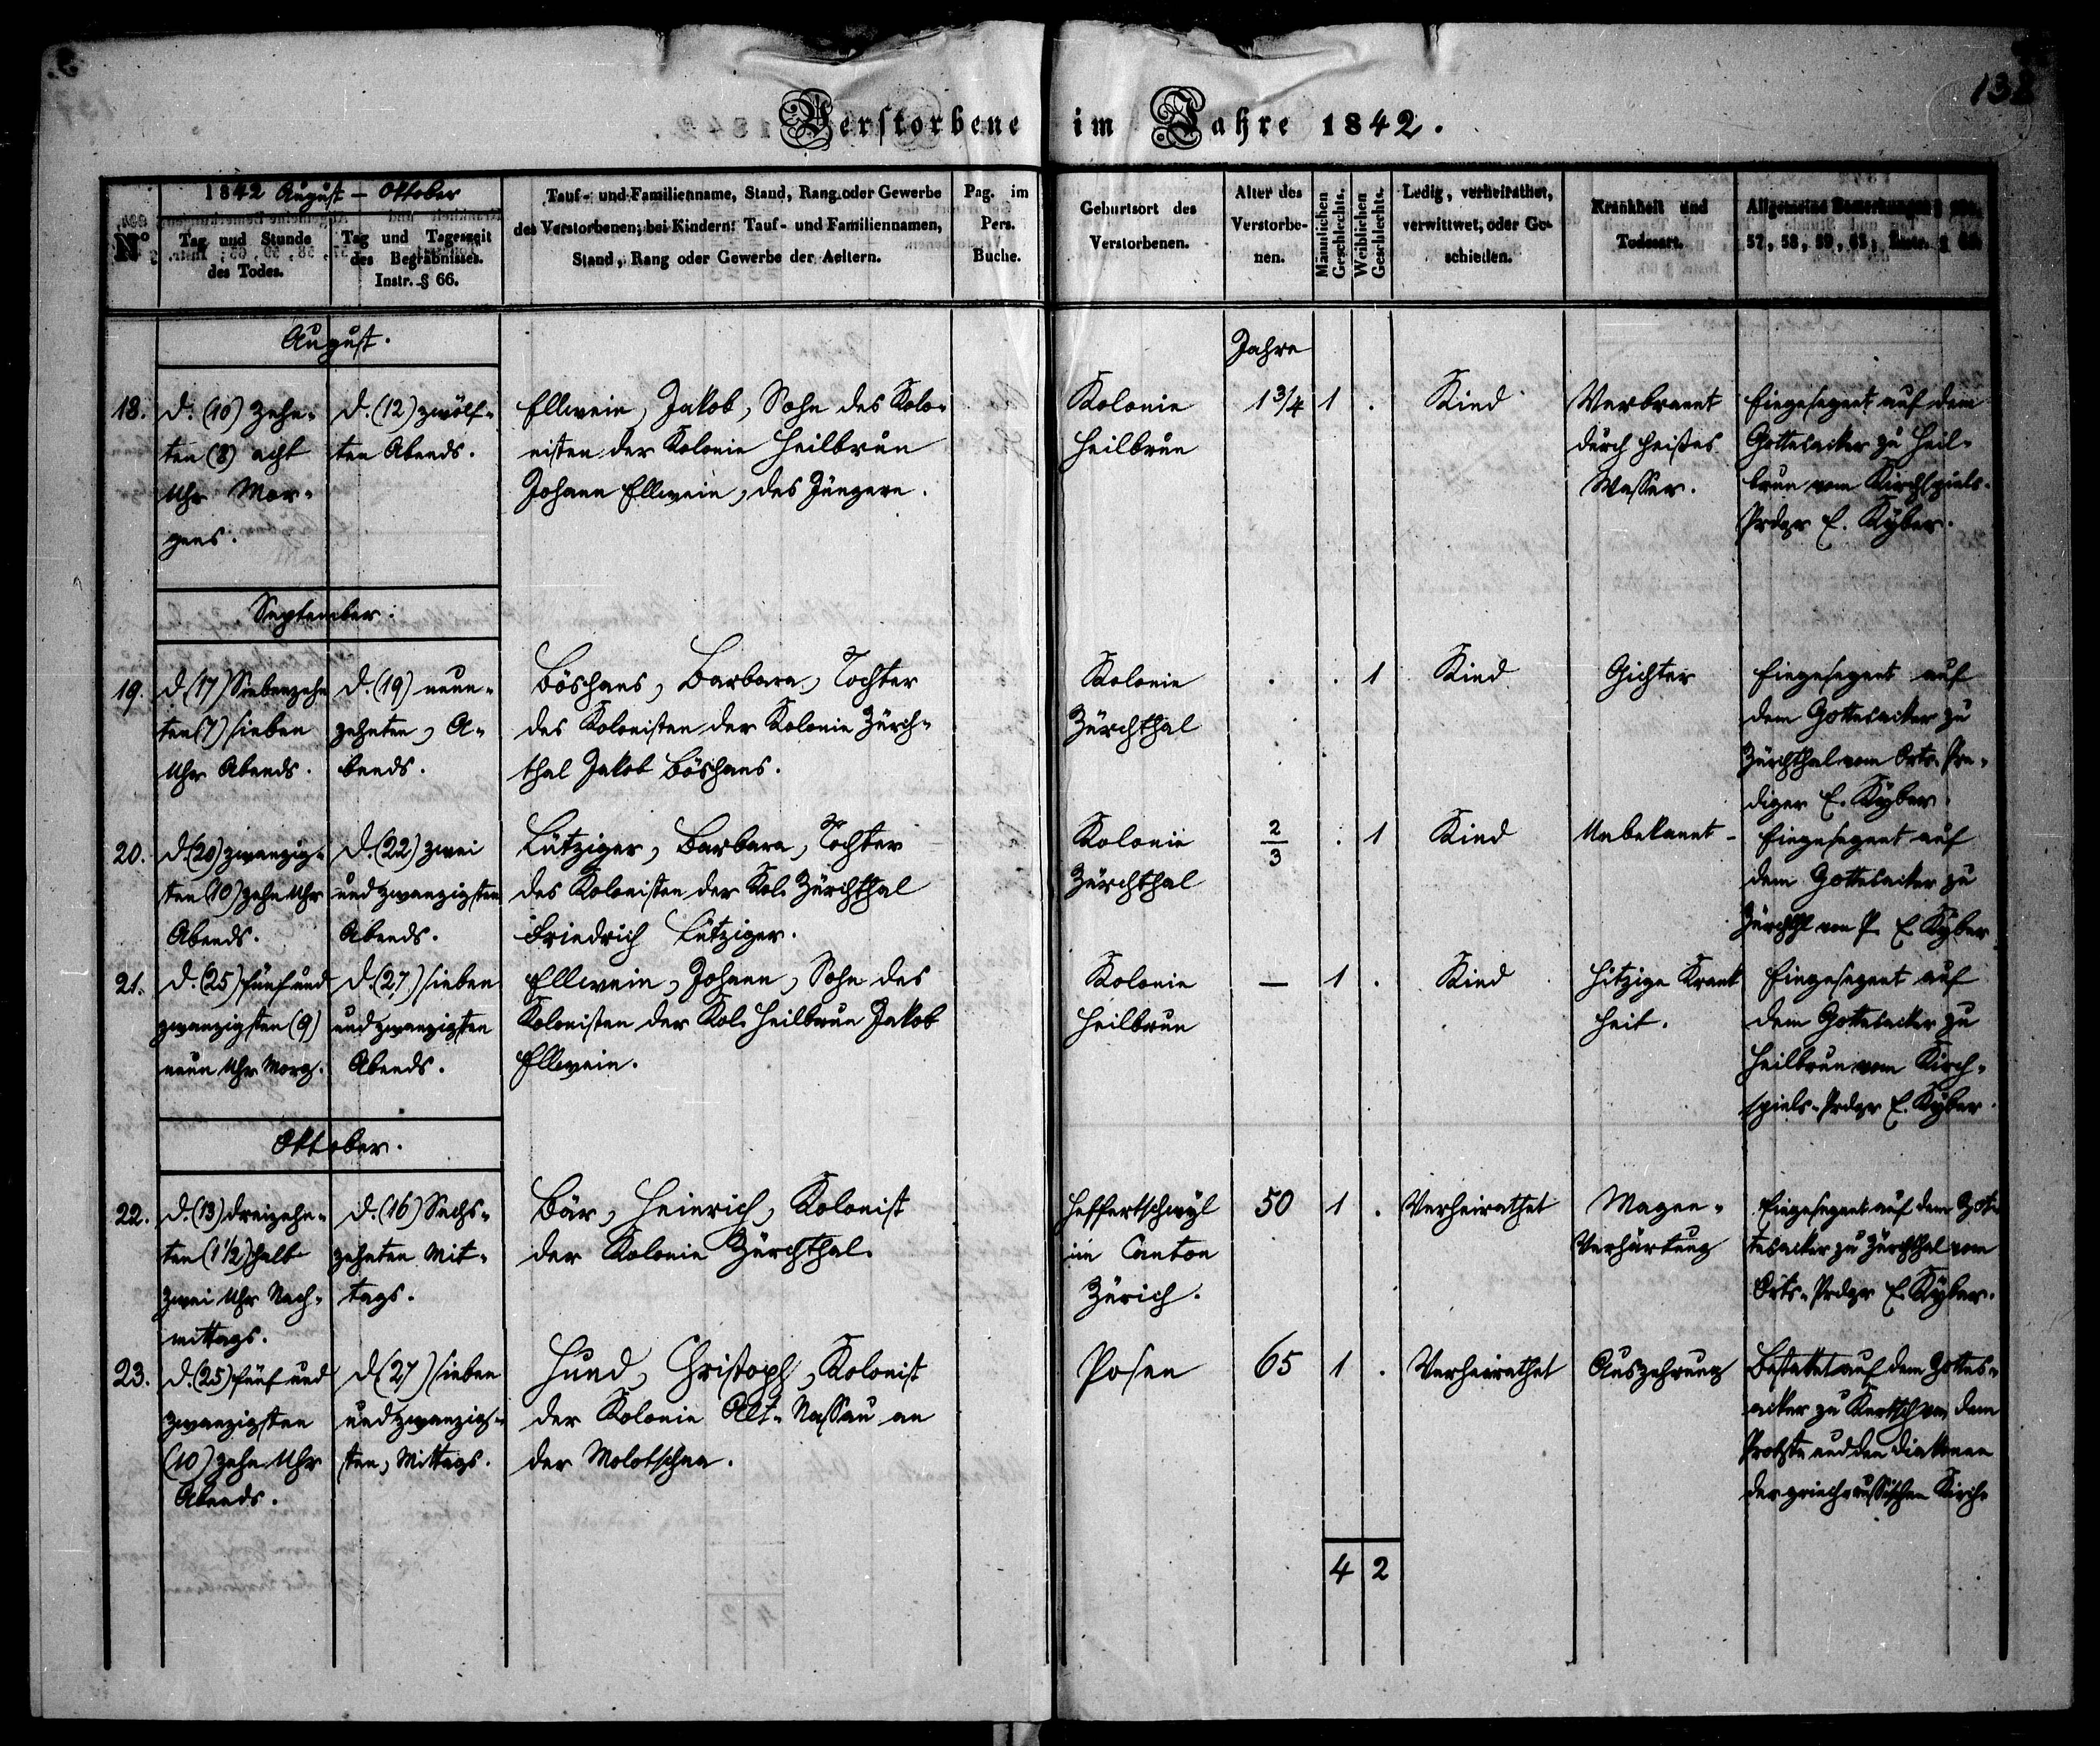 138
Verstorbene im Jahre 1842.
1842 August – Oktober
No
Tag und Stunde
des Todes.
Tag und Tageszeit
des Begräbnisses.
Instr. § 66.
Tauf- und Familienname, Stand, Rang oder Gewerbe
des Verstorbenen; bei Kindern: Tauf- und Familiennamen,
Stand, Rang oder Gewerbe der Aeltern.
Pag. im
Pers.
Buche.
Geburtsort des
Verstorbenen.
Alter des
Verstorbe-
nen.
Männlichen
Geschlechts.
Weiblichen
Geschlechts.
Ledig, verheirathet,
verwittwet, oder Ge-
schieden.
Krankheit und
Todesart.
Allgemeine Bemerkungen
57, 58, 59, 65; Instr. §
August.
Jahre
18.
d. (10) zehn-
ten (8) acht
Uhr Mor-
gens.
d. (12) zwölf-
ten Abends.
Ellwein, Jakob, Sohn des Kolo-
nisten der Kolonie Heilbrun
Johann Ellwein, des Jüngern.
Kolonie
Heilbrun
1 3/4
1
.
Kind
Verbrannt
durch heißes
Wasser.
Eingesegnet auf dem
Gottesacker zu Heil-
brun vom Kirchspiels-
Prdgr E. Kyber.
September.
19.
d. (17) Siebenzehn
ten (7) sieben
Uhr Abends.
d. (19) neun-
zehnten, A-
bends.
Böshans, Barbara, Tochter
des Kolonisten der Kolonie Zürch-
thal Jakob Böshans.
Kolonie
Zürchthal
.
.
1
Kind
Gichter
Eingesegnet auf
dem Gottesacker zu
Zürchthal vom Orts-Pre-
diger E. Kyber.
20.
d. (20) zwanzig-
sten (10) zehn Uhr
Abends.
d. (22) zwei
und zwanzigsten
Abends.
Lütziger, Barbara, Tochter
des Kolonisten der Kol. Zürchthal
Friedrich Lütziger.
Kolonie
Zürchthal
2/3
.
1
Kind
Unbekannt
Eingesegnet auf
dem Gottesacker zu
Zürchthl von P. E. Kyber
21.
d. (25) fünf und
zwanzigsten (9)
neun Uhr Morg.
d. (27) sieben
und zwanzigsten
Abends.
Ellwein, Johann, Sohn des
Kolonisten der Kol. Heilbrun Jakob
Ellwein.
Kolonie
Heilbrun
—
1
.
Kind
Hitzige Krank
heit.
Eingesegnet auf
dem Gottesacker zu
Heilbrun vom Kirch-
spiels-Prdgr E. Kyber.
Oktober.
22.
d. (13) dreizehn-
ten (1 1/2) halb
zwei Uhr Nach-
mittags.
d. (16) Sechs-
zehnten Mit-
tags.
Bär, Heinrich, Kolonist
der Kolonie Zürchthal.
Heffertschwyl
im Canton
Zürich.
50
1
.
Verheirathet
Magen-
Verhärtung
Eingesegnet auf dem Got-
tesacker zu Zürchthal vom
Orts-Prdgr E. Kyber.
23.
d. (25) fünf und
zwanzigsten
(10) zehn Uhr
Abends.
d (27) sieben
und zwanzig-
sten, Mittags.
Hund, Christoph, Kolonist
der Kolonie Alt-Nassau an
der Molotschna.
Posen
65
1
.
Verheirathet
Auszehrung
Bestattet auf dem Gottes-
acker zu Kertsch von dem
Probste und den Diakonen
der griech russischen Kirche
4
2